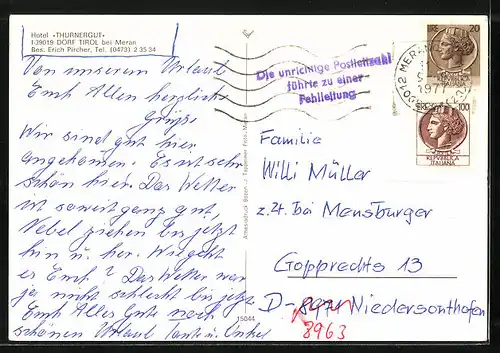 Hotel «THURNERGUT»
I-39019 DORF TIROL bei Meran
Bes. Erich Pircher, Tel. (0473) 2 35 34
Von unserem Urlaub
Euch Allen herzliche
Grüße
Wir sind gut hier
angekommen. Es ist sehr
schön hier. Das Wetter
ist soweit ganz gut,
Nebel ziehen bis jetzt
hin u. her. Wie geht
es Euch? Das Wetter war
ja nicht schlecht bis jetzt
Euch Alles Gute noch
schönen Urlaub Tante u. Onkel
15044
Die unrichtige Postleitzahl
führte zu einer
Fehlleitung
MERANO
1977
20
100
REPUBBLICA
ITALIANA
Familie
Willi Müller
z. Zt. bei Mensburger
Gopprechts 13
D-8971 Niedersonthofen
8963